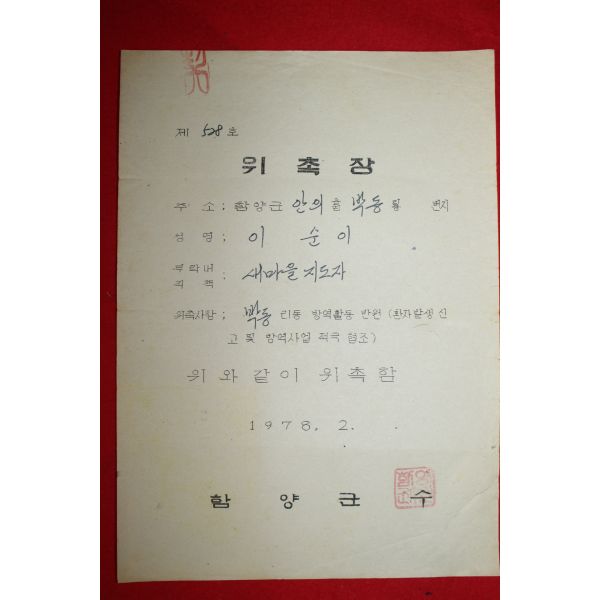 제 528 호
위 촉 장
주 소 ; 함양군 안의 면 박동 리 번지
성 명 ; 이 순 이
부락내
직 책 ; 새마을 지도자
위촉사항 ; 박동 리동 방역활동 반원 (환자발생 신
고 및 방역사업 적극 협조)
위 와 같 이 위 촉 함
1978. 2. .
함 양 군 수